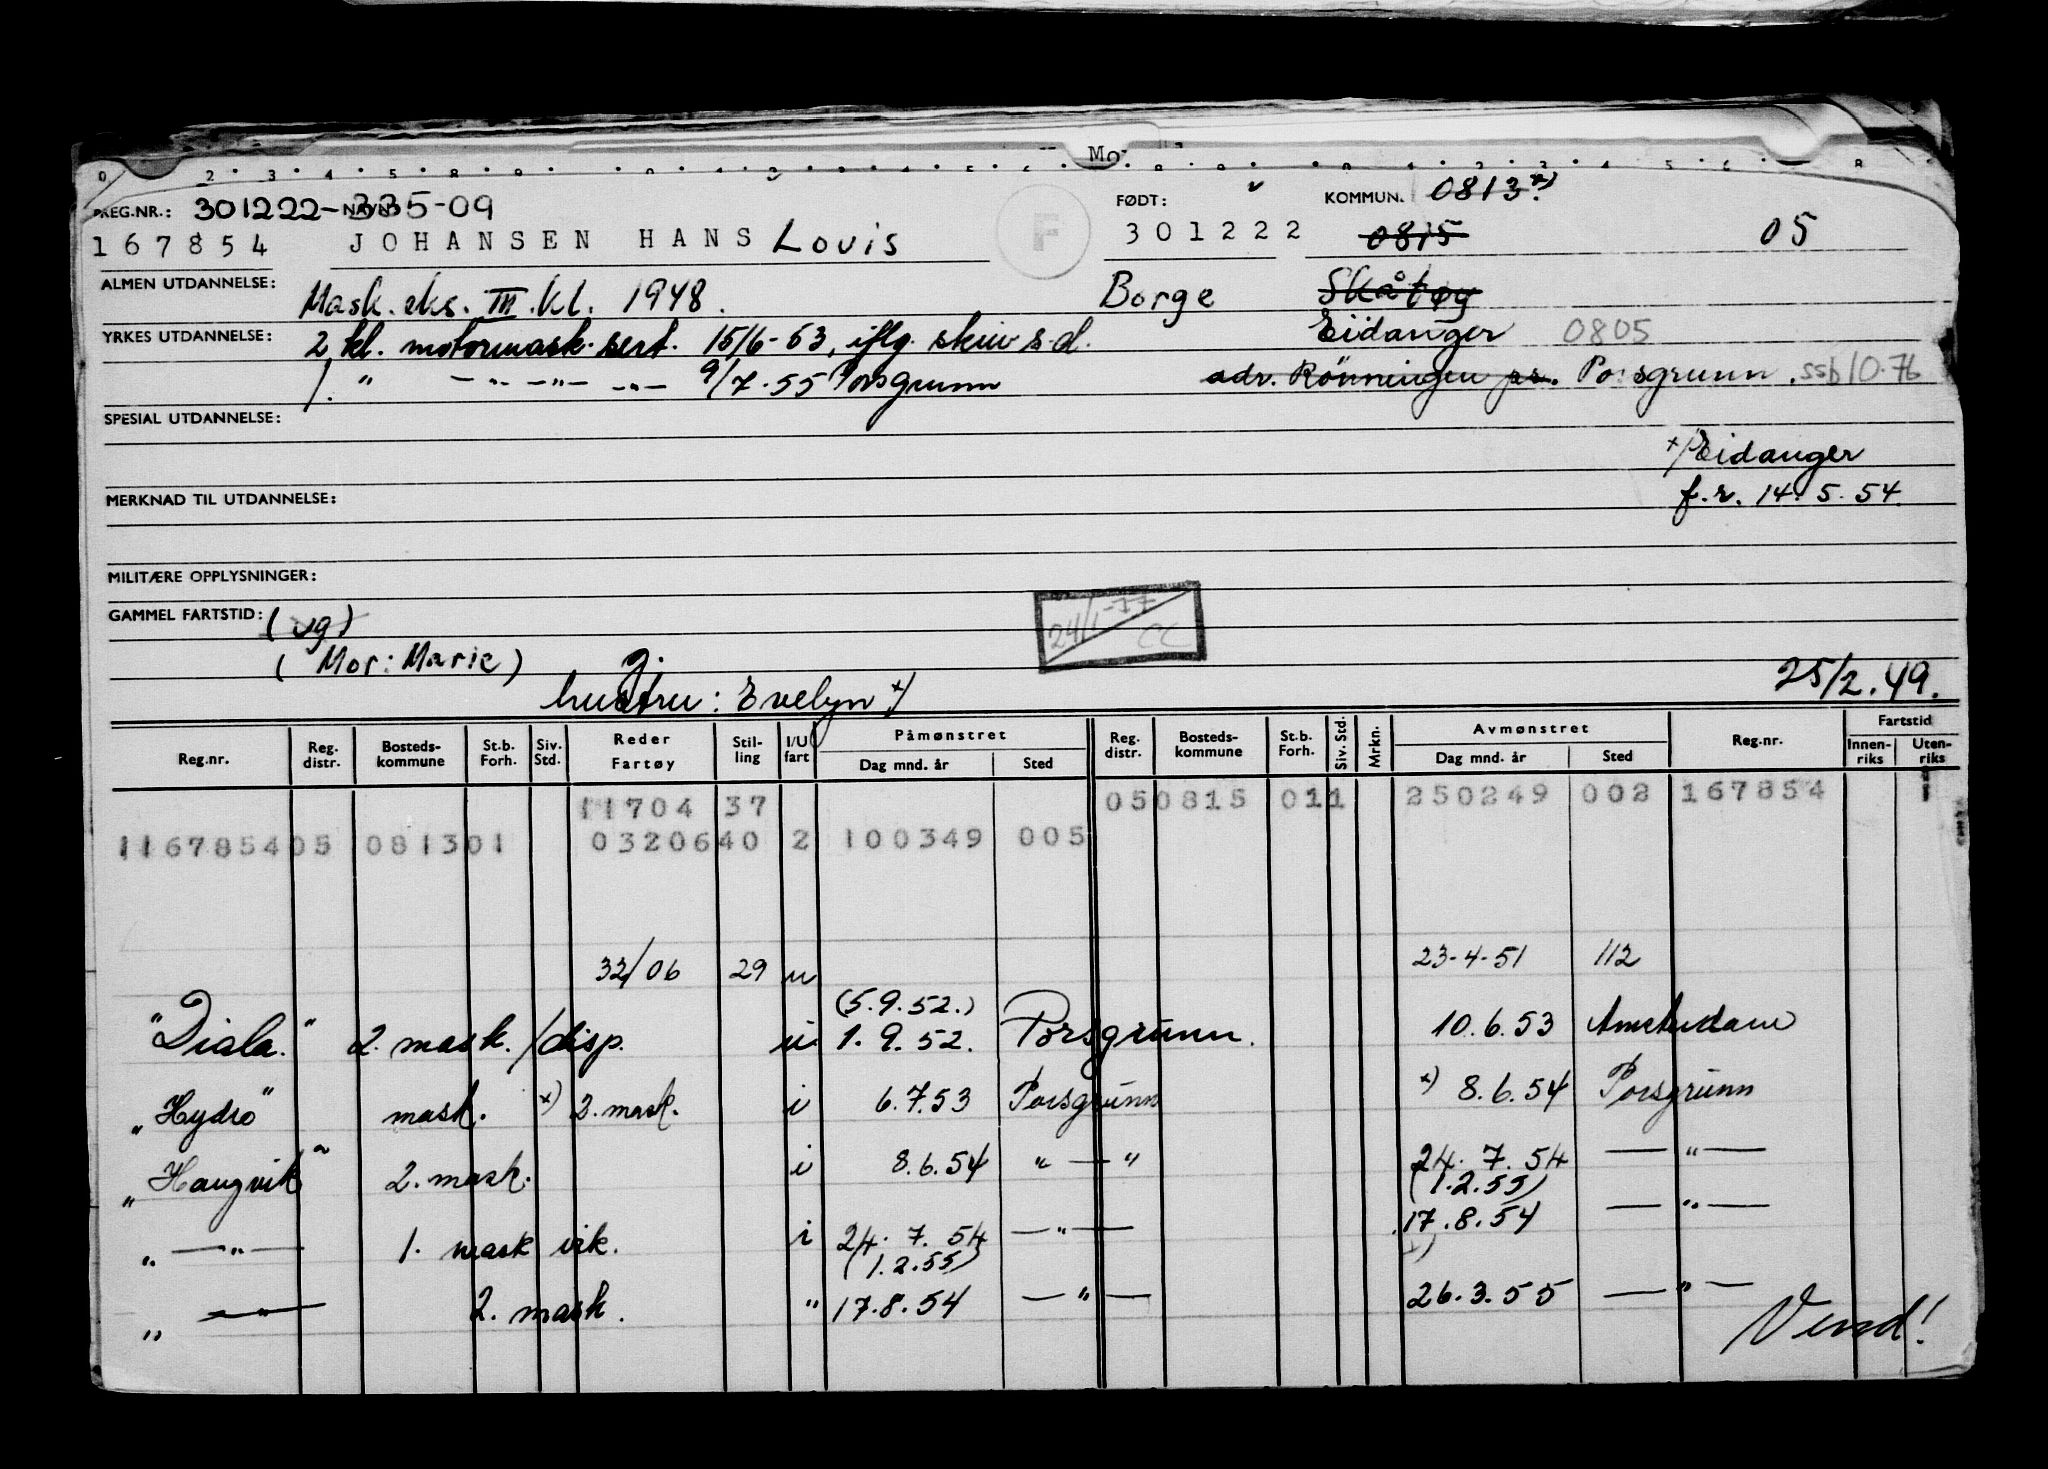 Mo
REG.NR.: 301222-335-09 FØDT: KOMMUN. 0813 x)
167854 JOHANSEN HANS Lovis F 301222 0815 05
ALMEN UTDANNELSE: Mask.eks. III.kl. 1948. Borge Skåtøy
YRKES UTDANNELSE: 2 kl. motormask. sert. 15/6-53, iflg. skriv s.d. Eidanger 0805
1. " — " — " — " — 9/7.55 Porsgrunn adr. Rönningen pr. Porsgrunn. ssb 10.76
SPESIAL UTDANNELSE:
x) Eidanger
MERKNAD TIL UTDANNELSE: f.r. 14.5.54.
MILITÆRE OPPLYSNINGER:
GAMMEL FARTSTID: (vg) 24/1-77 CC
(Mor: Marie) g.
hustru: Evelyn x) 25/2.49.
Reg.nr. Reg. distr. Bosteds-kommune St.b. Forh. Siv. Std. Reder Fartøy Stil-ling I/U fart Påmønstret Dag mnd. år Sted Reg. distr. Bosteds-kommune St.b. Forh. Siv. Std. Mrkn. Avmønstret Dag mnd. år Sted Reg.nr. Fartstid Innen-riks Uten-riks
11704 37 050815 011 250249 002 167854 1
116785405 081301 0320640 2 100349 005
32/06 29 u 23-4-51 112
(5.9.52.)
"Diala." 2. mask./disp. u 1.9.52. Porsgrunn. 10.6.53 Amsterdam
"Hydro" mask. x) 2. mask. i 6.7.53 Porsgrunn x) 8.6.54 Porsgrunn
"Haugvik" 2. mask. i 8.6.54 " — " 24.7.54 — " —
(1.2.55)
" — " — 1. mask vik. i 24.7.54 — " — 17.8.54 — " —
(1.2.55) x)
" — " — 2. mask. " 17.8.54 — " — 26.3.55 — " —
Vend!